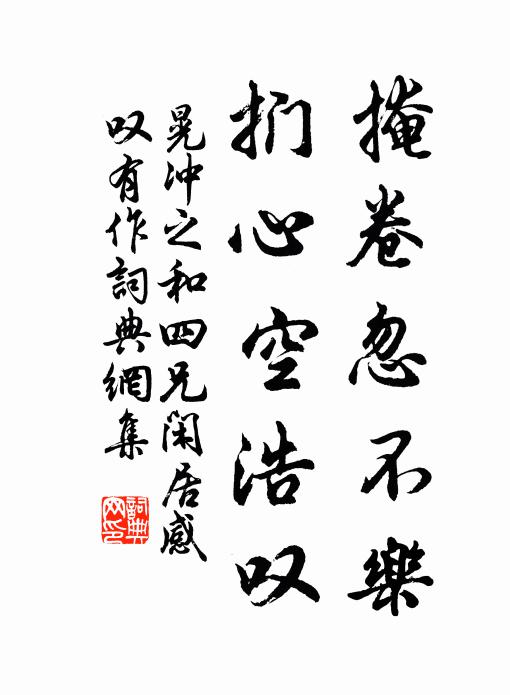 掩卷忽不樂
捫心空浩叹
晁沖之和四兄閑居感
叹有作詞典網集
詞典
网印